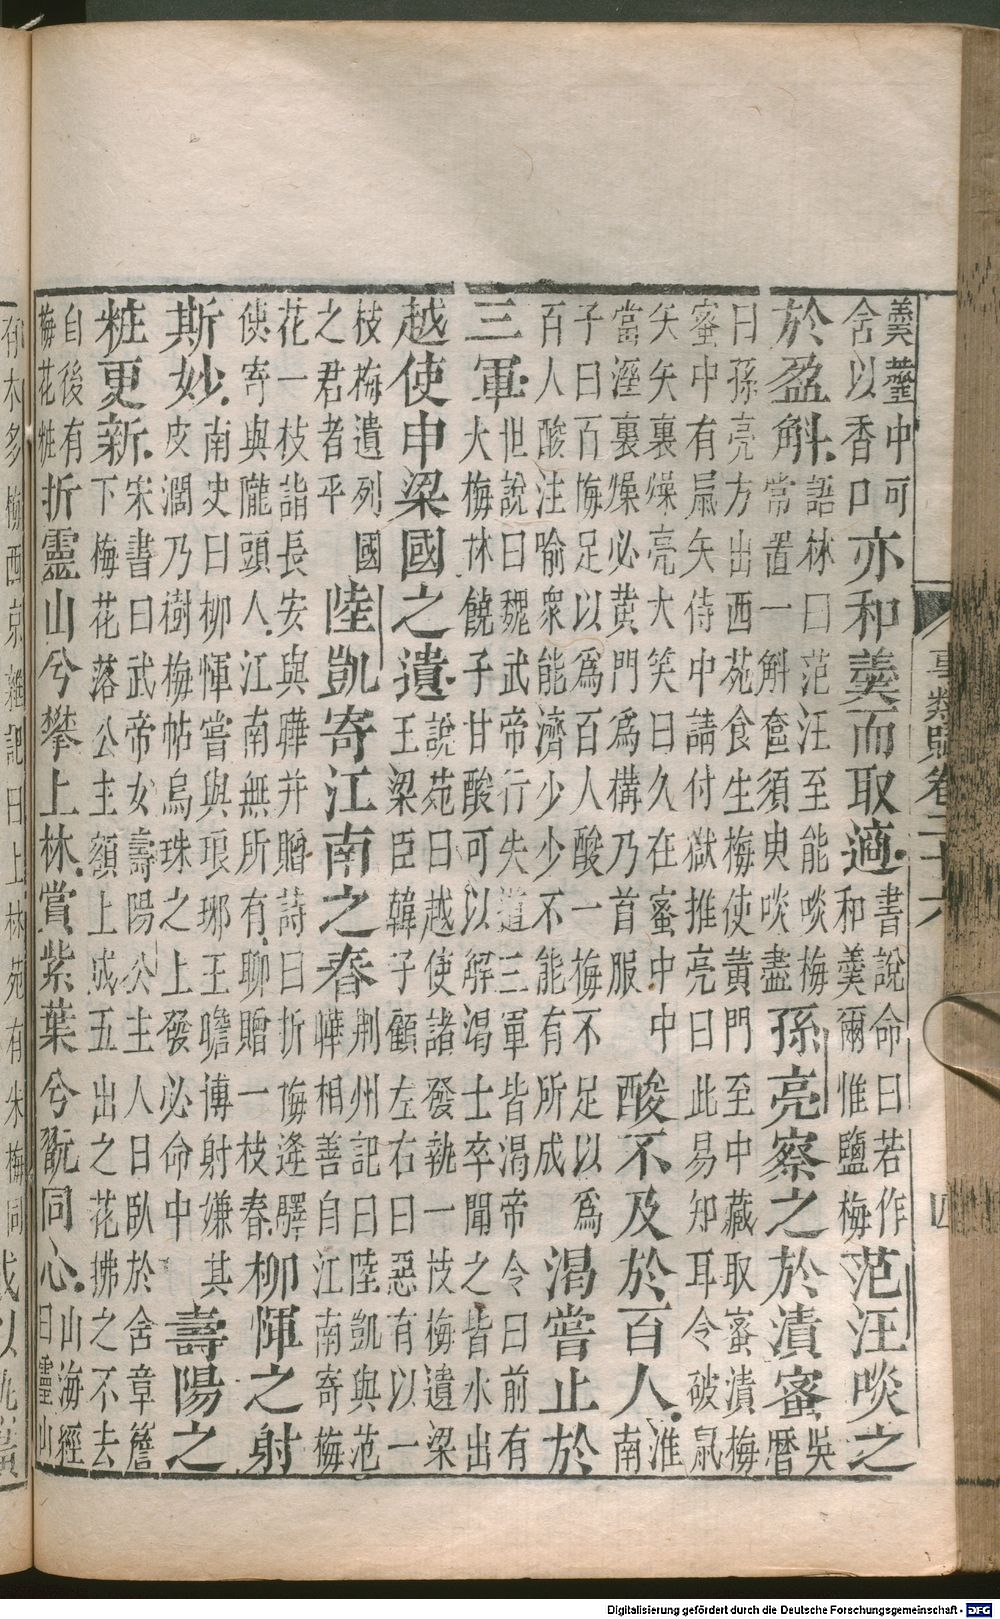 羹虀中可
含以香口
亦和羹而取適
書說命曰若作
和羹爾惟鹽梅
范汪啖之
於盈斛
語林曰范汪至能啖梅
常置一斛奩須臾啖盡
孫亮察之於漬蜜
吳
曆
曰孫亮方出西苑食生梅使黃門至中藏取蜜漬梅
蜜中有鼠矢侍中請付獄推亮曰此易知耳令破鼠
矢矢裏燥亮大笑曰久在蜜中中
當溼裏燥必黃門爲構乃首服
酸不及於百人
淮
南
子曰百梅足以爲百人酸一梅不足以爲
百人酸注喻衆能濟少少不能有所成
渴嘗止於
三軍
世說曰魏武帝行失道三軍皆渴帝令曰前有
大梅林饒子甘酸可以解渴士卒聞之皆水出
越使申梁國之遺
說苑曰越使諸發執一枝梅遺梁
王梁臣韓子顧左右曰惡有以一
枝梅遺列國
之君者乎
陸凱寄江南之春
荆州記曰陸凱與范
曄相善自江南寄梅
花一枝詣長安與曄并贈詩曰折梅逢驛
使寄與隴頭人江南無所有聊贈一枝春
柳惲之射
斯妙
南史曰柳惲嘗與琅琊王瞻博射嫌其
皮濶乃樹梅帖烏珠之上發必命中
壽陽之
粧更新
宋書曰武帝女壽陽公主人日臥於舍章簷
下梅花落公主額上成五出之花拂之不去
自後有
梅花粧
折靈山兮攀上林賞紫葉兮翫同心
山海經
曰靈山
有木多梅西京雜記曰上林苑有朱梅同
事類賦卷二十六
四
Digitalisierung gefördert durch die Deutsche Forschungsgemeinschaft - DFG